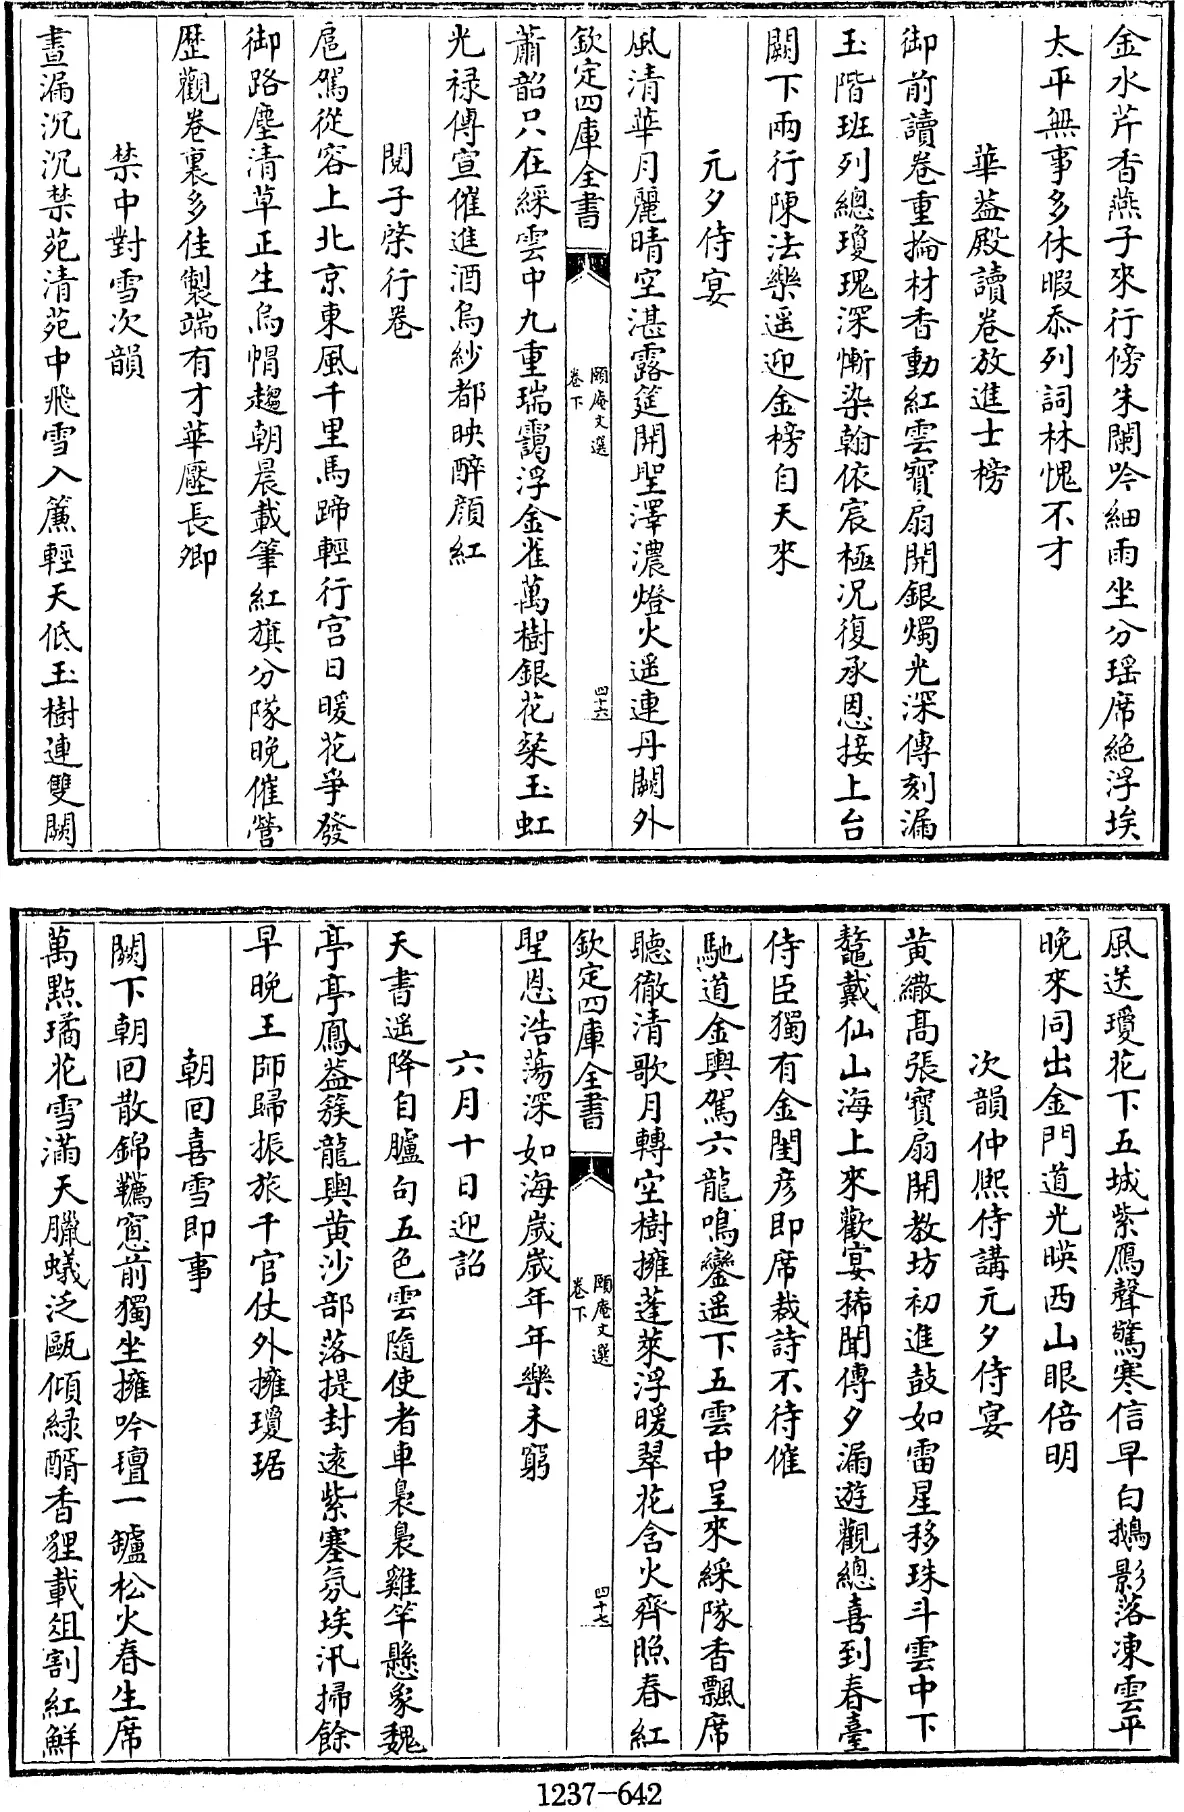 金水芹香燕子來行傍朱闌吟細雨坐分瑶席絶浮埃
太平無事多休暇忝列詞林愧不才
華葢殿讀卷放進士榜
御前讀卷重掄材香動紅雲寳扇開銀燭光深傳刻漏
玉階班列總瓊瑰深慚染翰依宸極况復承恩接上台
闕下兩行陳法樂遥迎金榜自天來
元夕侍宴
風清華月麗晴空湛露筵開聖澤濃燈火遥連丹闕外
欽定四庫全書
頤庵文選
卷下
四十六
簫韶只在綵雲中九重瑞靄浮金雀萬樹銀花粲玉虹
光禄傳宣催進酒烏紗都映醉顔紅
閱子棨行卷
扈駕從容上北京東風千里馬蹄輕行宫日暖花爭發
御路塵清草正生烏帽趨朝晨載筆紅旗分隊晚催營
歴觀卷裏多佳製端有才華壓長卿
禁中對雪次韻
晝漏沉沉禁苑清苑中飛雪入簾輕天低玉樹連雙闕
風送瓊花下五城紫鴈聲驚寒信早白鵝影落凍雲平
晚來同出金門道光暎西山眼倍明
次韻仲熈侍講元夕侍宴
黄繖髙張寳扇開教坊初進鼓如雷星移珠斗雲中下
鼇戴仙山海上來歡宴稀聞傳夕漏遊觀總喜到春臺
侍臣獨有金閨彦即席裁詩不待催
馳道金輿駕六龍鳴鑾遥下五雲中呈來綵隊香飄席
聽徹清歌月轉空樹擁蓬萊浮暖翠花含火齊照春紅
欽定四庫全書
頤庵文選
卷下
四十七
聖恩浩蕩深如海歲歲年年樂未窮
六月十日迎詔
天書遥降自臚句五色雲隨使者車裊裊雞竿懸象魏
亭亭鳳葢簇龍輿黄沙部落提封逺紫塞氛埃汛掃餘
早晚王師歸振旅千官仗外擁瓊琚
朝回喜雪即事
闕下朝回散錦韉窻前獨坐擁吟壇一鑪松火春生席
萬點璚花雪滿天臘蟻泛甌傾緑醑香貍載俎割紅鮮
1237-642